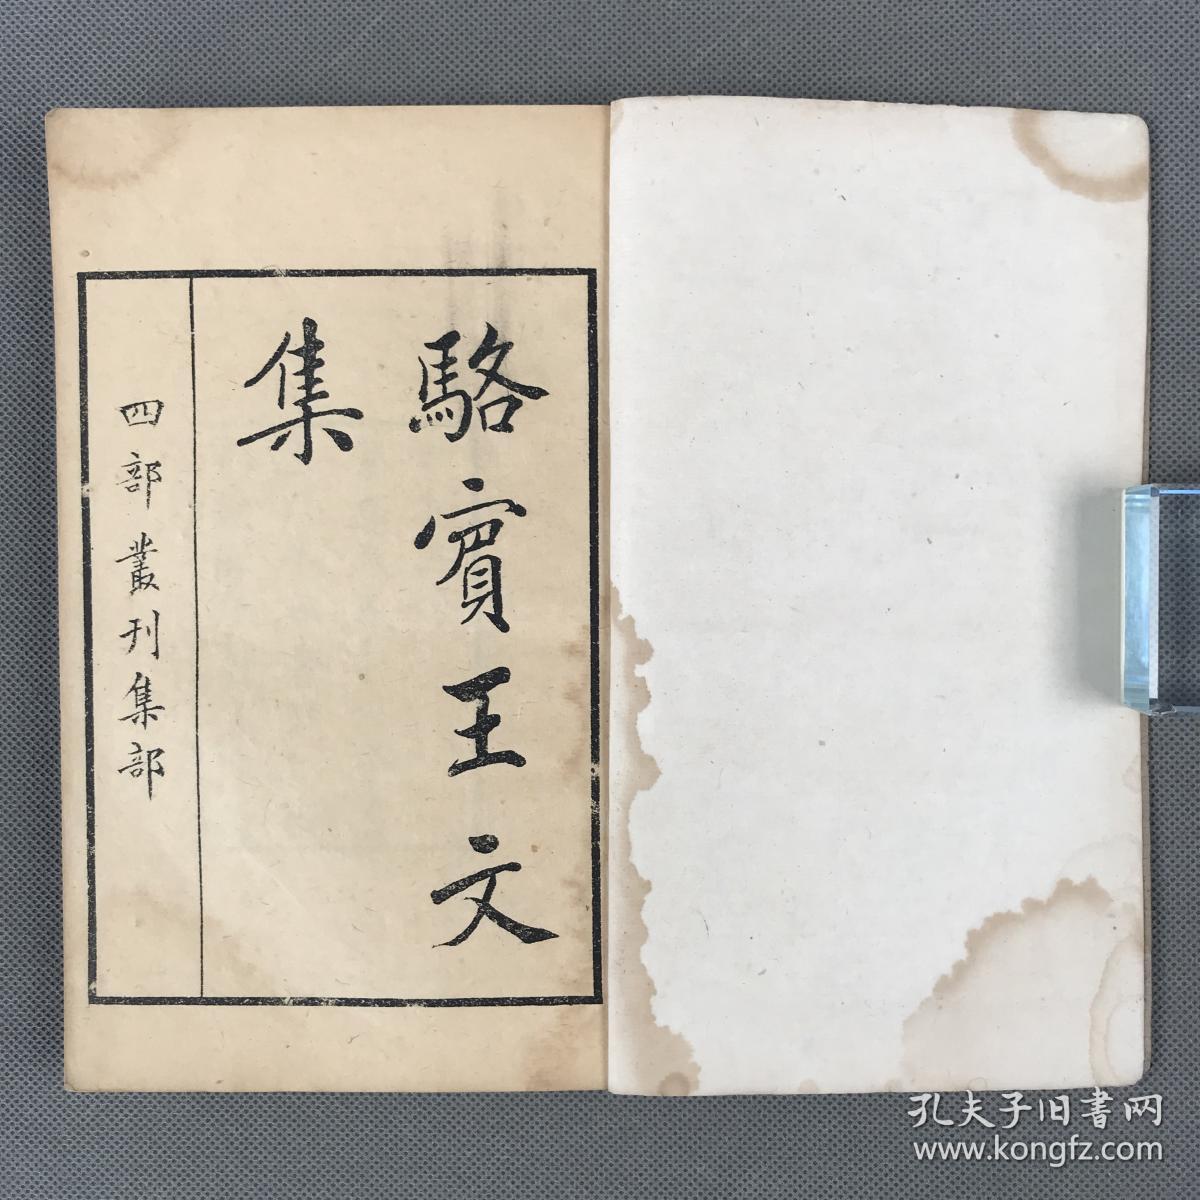 駱賓王文
集
四部叢刊集部
孔夫子旧書网
www.kongfz.com